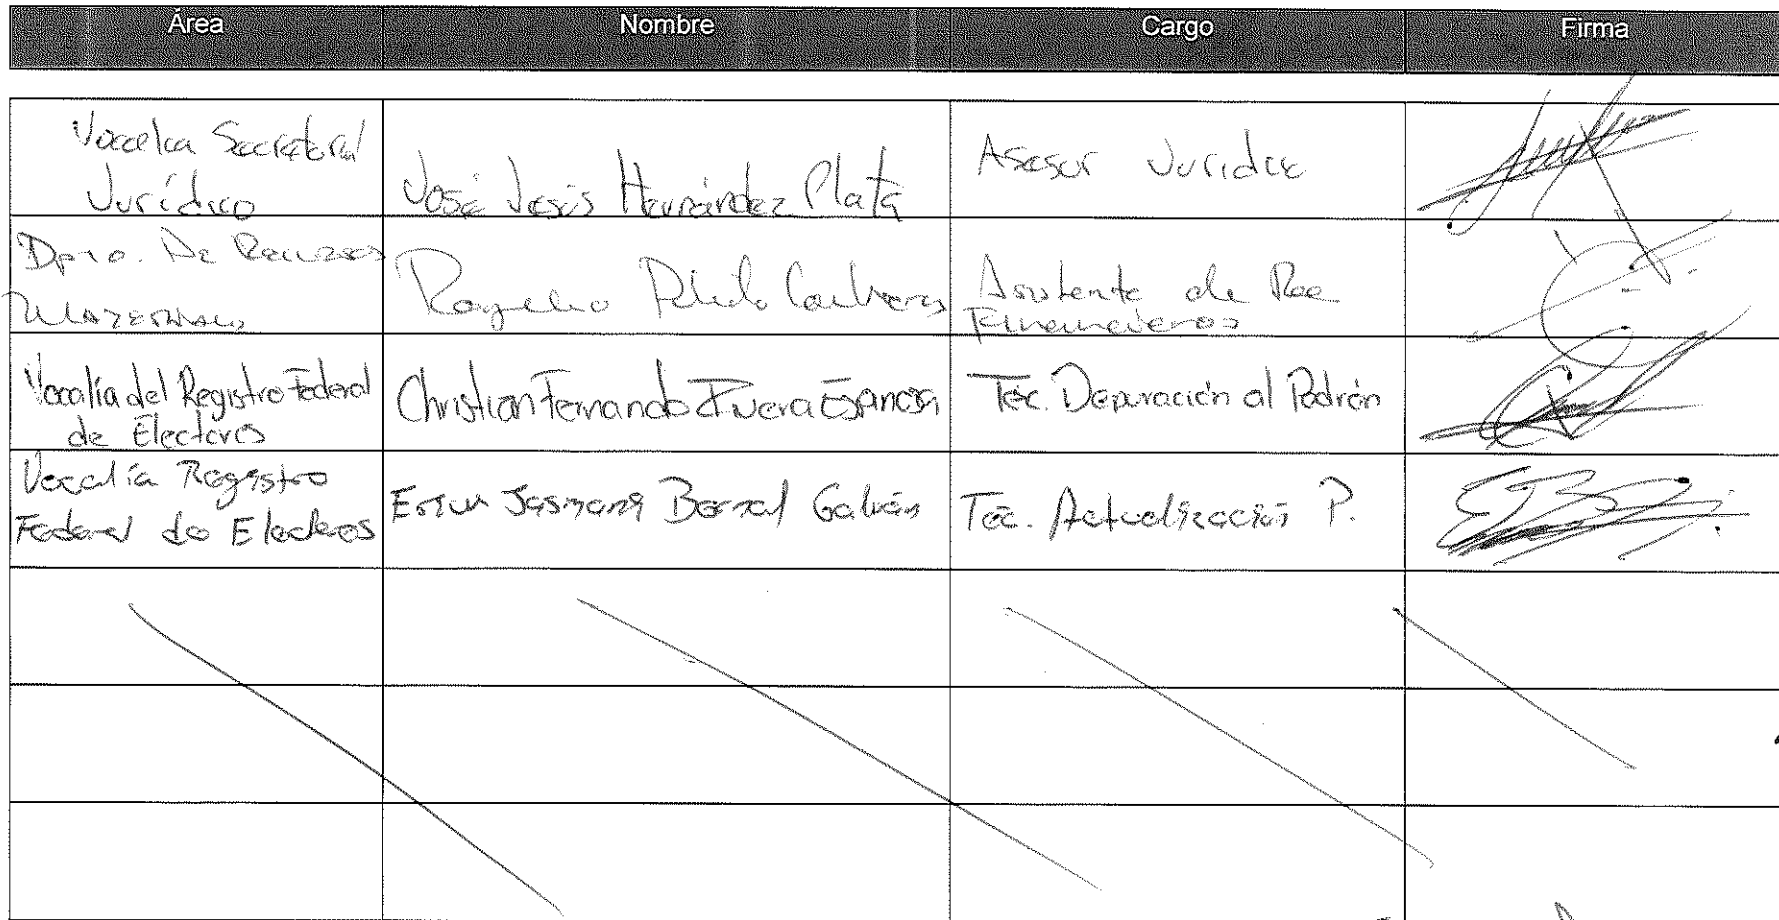 Área Nombre Cargo Firma
Secretarial
Jurídico José Jesús Hernández Plata Asesor Jurídico
Dpto. De Recursos
Materiales Rogelio Asistente de Rec
Financieros
Vocalía del Registro Federal
de Electores Christian Fernando Tec. Depuración al Padrón
Vocalía Registro
Federal de Electores Bernal Galván Tec. Actualización P.